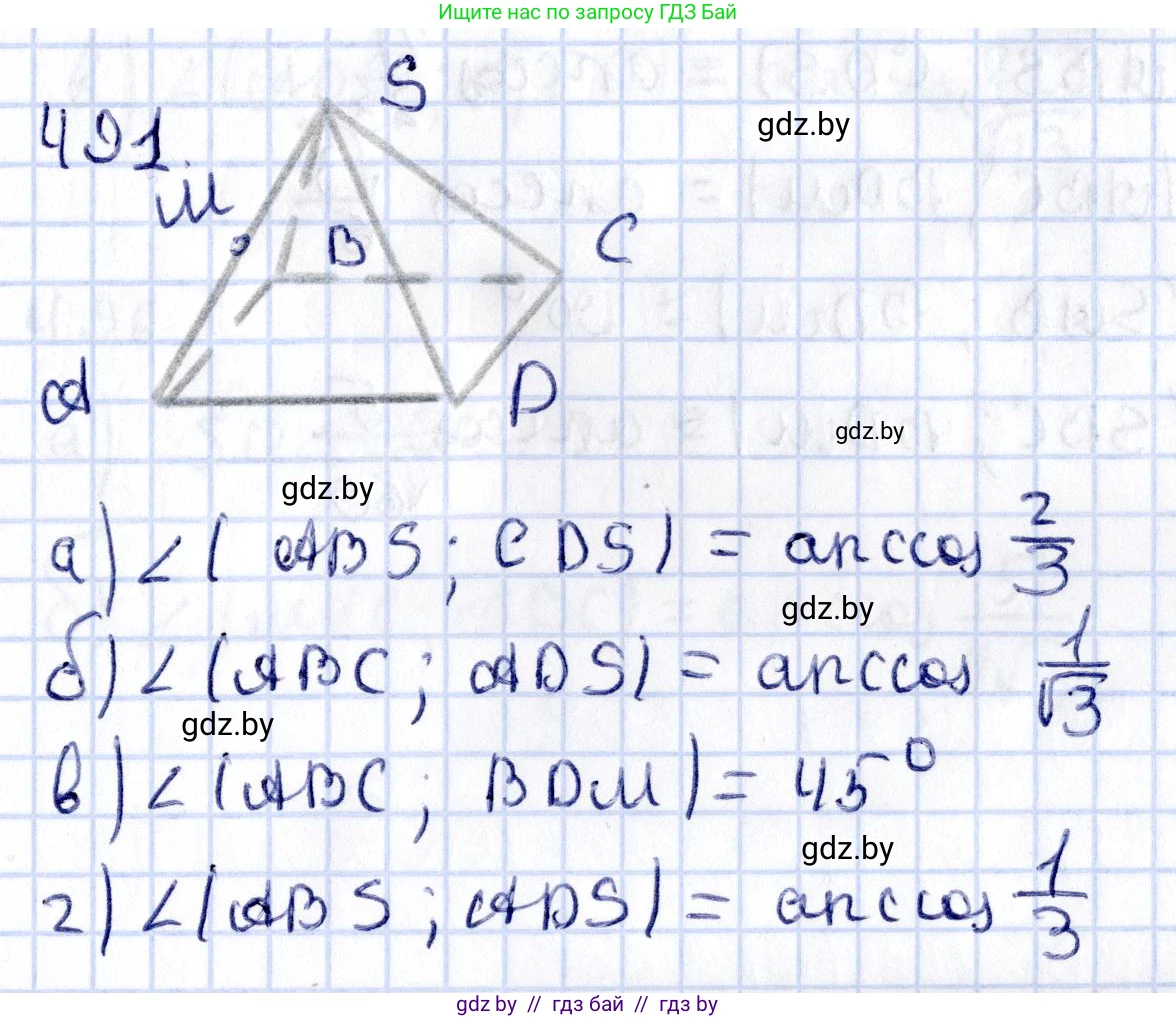 Ищите нас по запросу ГДЗ Бай
S
gdz.by
491.
M
B
C
A
D
gdz.by
gdz.by
а) ∠(ABS; CDS) = arccos 2/3
gdz.by
б) ∠(ABC; ADS) = arccos 1/√3
gdz.by
в) ∠(ABC; BDM) = 45°
gdz.by
г) ∠(ABS; ADS) = arccos 1/3
gdz.by // гдз бай // гдз by